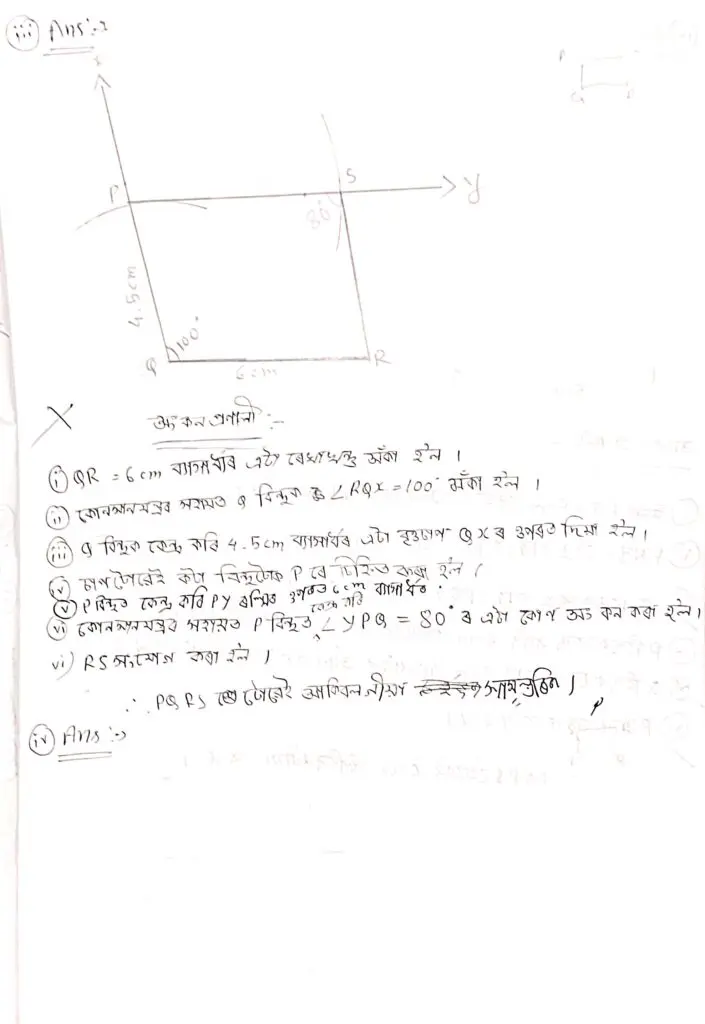 (iii) Ans :→
x
P
P
Q
R
S
y
80°
4.5cm
100°
Q
R
6cm
অংকন প্ৰণালী :-
(i) QR = 6cm ব্যাসাৰ্ধৰ এটা ৰেখাখণ্ড অঁকা হ'ল ।
(ii) কোনমানযন্ত্ৰৰ সহায়ত Q বিন্দুক ∠RQX = 100° অঁকা হ'ল ।
(iii) Q বিন্দুক কেন্দ্ৰ কৰি 4.5cm ব্যাসাৰ্ধৰ এটা বৃত্তচাপ QXৰ ওপৰত দিয়া হ'ল ।
(iv) চাপটোৱেই কটা বিন্দুটোক P ৰে চিহ্নিত কৰা হ'ল ।
(v) P বিন্দুত কেন্দ্ৰ কৰি PY ৰশ্মিৰ ওপৰত 6cm ব্যাসাৰ্ধৰ
কেন্দ্ৰ কৰি
(vi) কোনমানযন্ত্ৰৰ সহায়ত P বিন্দুত ∠YPQ = 80° ৰ এটা কোণ অংকন কৰা হ'ল ।
vi) RS সংযোগ কৰা হ'ল ।
∴ PQRS টোৱেই সামন্তৰিক ।
P
(iv) Ans :→